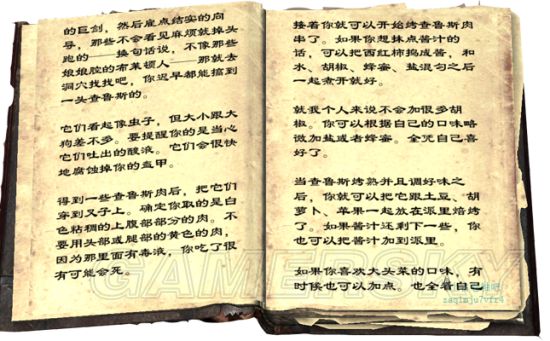 的巨剑，然后雇点结实的向
导，那些不会看见麻烦就掉头
跑的——换句话说，不像那些
娘娘腔的布莱顿人——那就去
洞穴找找吧，你迟早都能搞到
一头查鲁斯的。
它们看起像虫子，但大小跟大
狗差不多。要提醒你的是当心
它们吐出的酸液。它们会很快
地腐蚀掉你的盔甲。
得到一些查鲁斯肉后，把它们
穿到叉子上。确定你取的是白
色粘稠的上腹部部分的肉。不
要用头部或腿部的黄色的肉，
因为那里面有毒液，你吃了很
有可能会死。
接着你就可以开始烤查鲁斯肉
串了。如果你想抹点酱汁的
话，可以把西红柿捣成酱，和
水、胡椒、蜂蜜、盐混匀之后
一起煮开就好。
就我个人来说不会加很多胡
椒。你可以根据自己的口味略
微加盐或者蜂蜜。全凭自己喜
好了。
当查鲁斯烤熟并且调好味之
后，你就可以把它跟土豆、胡
萝卜、苹果一起放在派里焙烤
了。如果酱汁还剩下一些，你
也可以把酱汁加到派里。
如果你喜欢大头菜的口味，有
时候也可以加点。也全看自己
GAMERSKY
zaqimju7vfr4